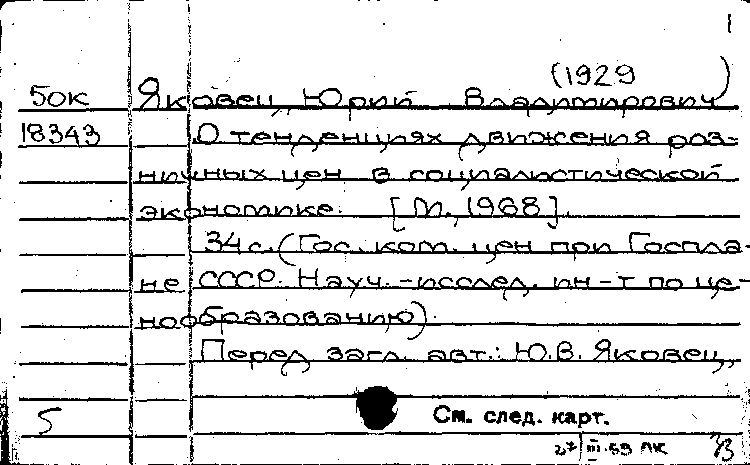 1
(1929 )
50к Яковец, Юрий Владимирович
18343 О тенденциях движения роз-
ничных цен в социалистической
экономике. [М., 1968].
34 с. (Гос. ком. цен при Госпла-
не СССР. Науч.-исслед. ин-т по це-
нообразованию).
Перед загл. авт.: Ю.В. Яковец,
5 См. след. карт.
27 III-69 ЛК